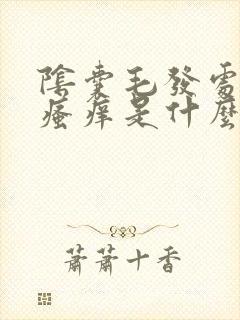 陰囊毛發處
瘙癢是什麼
蕭蕭十香